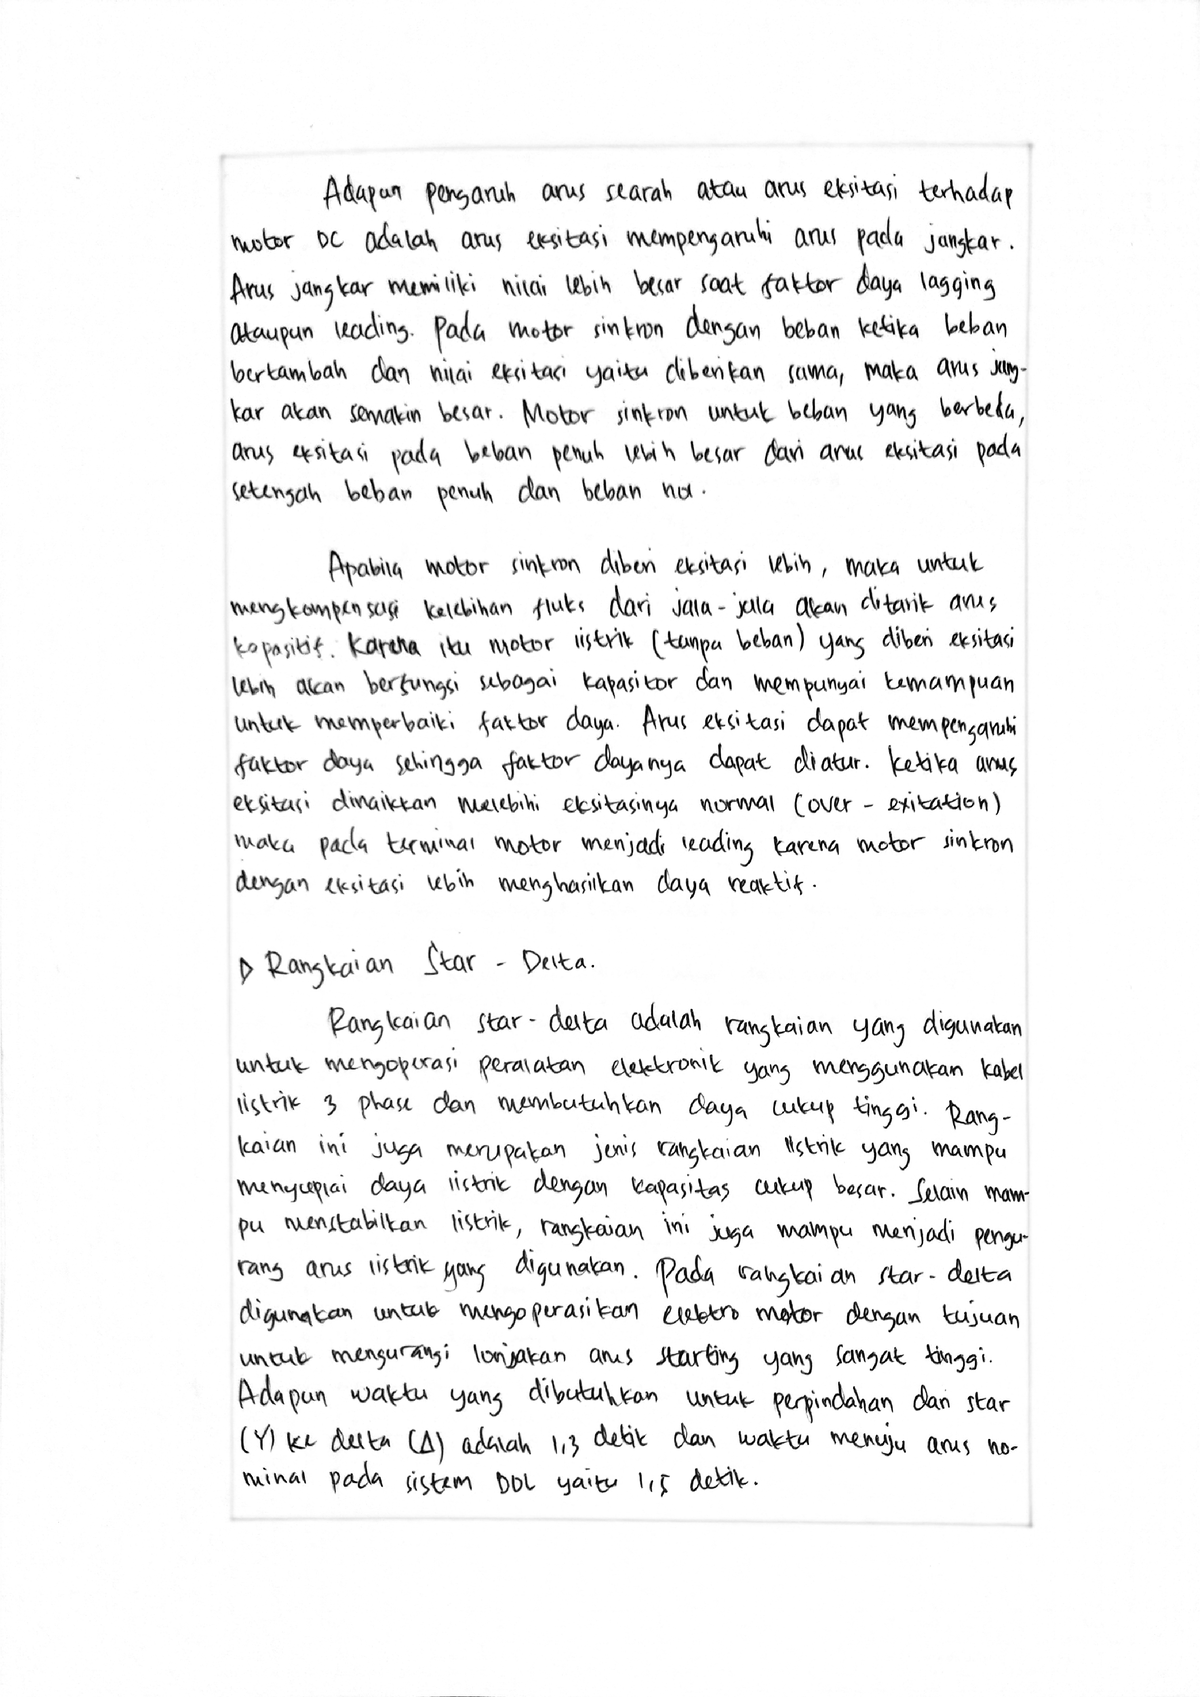 Adapun pengaruh arus searah atau arus eksitasi terhadap
motor DC adalah arus eksitasi mempengaruhi arus pada jangkar.
Arus jangkar memiliki nilai lebih besar saat faktor daya lagging
ataupun leading. Pada motor sinkron dengan beban ketika beban
bertambah dan nilai eksitasi yaitu diberikan sama, maka arus jang-
kar akan semakin besar. Motor sinkron untuk beban yang berbeda,
arus eksitasi pada beban penuh lebih besar dari arus eksitasi pada
setengah beban penuh dan beban nol.
Apabila motor sinkron diberi eksitasi lebih, maka untuk
mengkompensasi kelebihan fluks dari jala-jala akan ditarik arus
kapasitif. Karena itu motor listrik (tanpa beban) yang diberi eksitasi
lebih akan berfungsi sebagai kapasitor dan mempunyai kemampuan
untuk memperbaiki faktor daya. Arus eksitasi dapat mempengaruhi
faktor daya sehingga faktor dayanya dapat diatur. Ketika arus
eksitasi dinaikkan melebihi eksitasinya normal (over - exitation)
maka pada terminal motor menjadi leading karena motor sinkron
dengan eksitasi lebih menghasilkan daya reaktif.
▷ Rangkaian Star - Delta.
Rangkaian star-delta adalah rangkaian yang digunakan
untuk mengoperasi peralatan elektronik yang menggunakan kabel
listrik 3 phase dan membutuhkan daya cukup tinggi. Rang-
kaian ini juga merupakan jenis rangkaian listrik yang mampu
menyuplai daya listrik dengan kapasitas cukup besar. Selain mam-
pu menstabilkan listrik, rangkaian ini juga mampu menjadi pengu-
rang arus listrik yang digunakan. Pada rangkaian star-delta
digunakan untuk mengoperasikan elektro motor dengan tujuan
untuk mengurangi lonjakan arus starting yang sangat tinggi.
Adapun waktu yang dibutuhkan untuk perpindahan dari star
(Y) ke delta (Δ) adalah 1,3 detik dan waktu menuju arus no-
minal pada sistem DOL yaitu 1,5 detik.